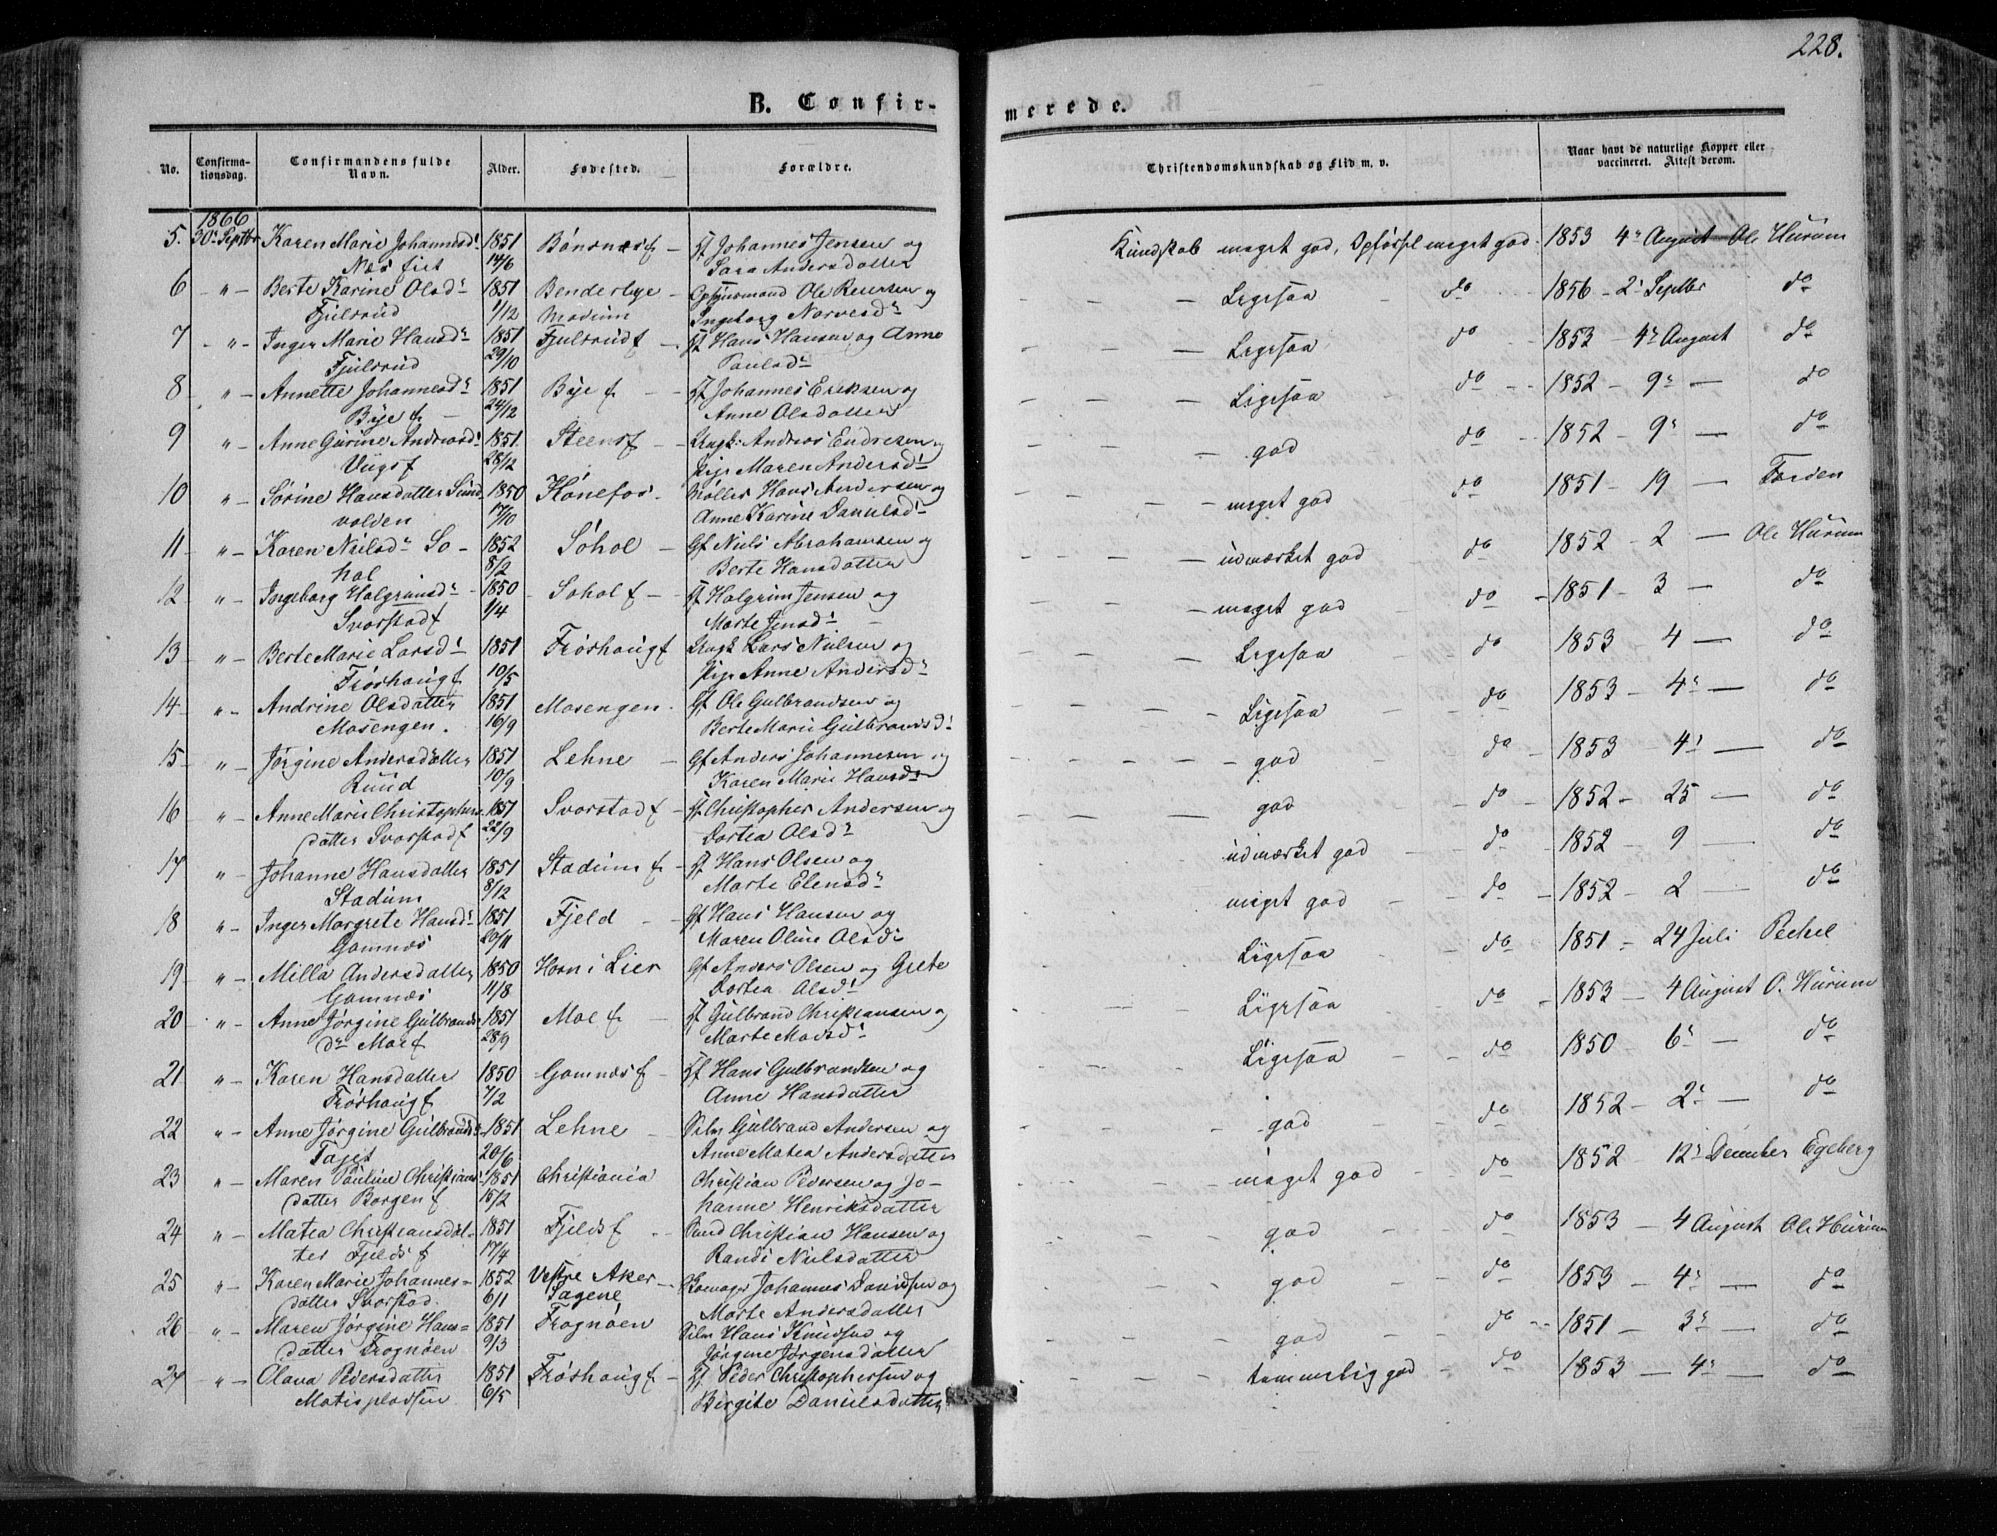 228.
B. Confir-
merede.
No.
Confirma-
tionsdag.
Confirmandens fulde
Navn.
Alder.
Fødested.
Forældre.
Christendomskundskab og Flid m. v.
Naar havt de naturlige Kopper eller
vaccineret. Attest derom.
1866
5. 30' Septbr Karen Marie Johannesd. 1851 Bønsnæs f — Johannes Jensen og Kundskab meget god, Opførsel meget god. 1853 4' August Ole Hurum
Næs eiet 14/6 Sara Andersdatter
6 " Berte Karine Olsd. 1851 Benderbye Ole Reiersen og Ligesaa do 1856 - 2' Septbr do
Fjulsrud 1/12 Modum Ingeborg Narvesd.
7 " Inger Marie Hansd. 1851 Fjulsrud f — Hans Hansen og Anne Ligesaa do 1853 - 4' August do
Fjulsrud 29/10 Paulsd.
8 " Annette Johannesd. 1851 Bye f — Johannes Eriksen og Ligesaa do 1852 - 9' — do
Bye f — 24/12 Anne Olsdatter
9 " Anne Gurine Andreasd. 1851 Steens f — Ungk. Andreas Endresen og god do 1852 - 9' — do
Viigs f 28/12 Pige Maren Andersd.
10 " Sørine Hansdatter Sund- 1850 Hønefos - Møller Hans Andersen og meget god do 1851 - 19 — Forden
volden 17/10 Anne Karine Danielsd.
11 " Karen Nielsd. So- 1852 Sohol — Gf Niels Abrahamsen og udmærket god do 1852 - 2 — Ole Hurum
hol 8/2 Berte Hansdatter
12 " Ingeborg Halgrimsd. 1850 Sohol f — Halgrim Jensen og meget god do 1851 - 3 — do
Svarstad f 1/4 Marte Jensd.
13 " Berte Marie Larsd. 1851 Frøshaug f Ungk Lars Nielsen og Ligesaa do 1853 - 4 — do
Frøshaug f 10/5 Pige Anne Andersd.
14 " Andrine Olsdatter 1851 Mosengen. Gf Ole Gulbrandsen og Ligesaa do 1853 - 4' — do
Mosengen. 16/9 Berte Marie Gulbrandsd.
15 " Jørgine Andersdatter 1851 Lehne — Gf Anders Johannesen og god do 1853 - 4' — do
Ruud 10/9 Karen Marie Hansd.
16 " Anne Marie Christophers- 1851 Svarstad f — Christopher Andersen og god do 1852 - 25 — do
datter Svarstad f 22/9 Dortea Olsd.
17 " Johanne Hansdatter 1851 Stadum f — Hans Olsen og udmærket god do 1852 - 9 — do
Stadum 8/12 Marte Elensd.
18 " Inger Margrete Hansd. 1851 Fjeld — Gf Hans Hansen og meget god do 1852 - 2 — do
Gomnæs 20/11 Maren Oline Olsd.
19 " Milla Andersdatter 1850 Horn i Lier Gf Anders Olsen og Grete Ligesaa do 1851 - 24 Juli Pechel
Gomnæs 11/8 Dortea Olsd.
20 " Anne Jørgine Gulbrands- 1851 Moe f — Gulbrand Christiansen og Ligesaa do 1853 - 4 August O. Hurum
dr. Moe f 28/9 Marte Madsd.
21 " Karen Hansdatter 1850 Gomnæs f — Hans Gulbrandsen og Ligesaa do 1850 - 6' — do
Frøshaug f 7/2 Anne Hansdatter
22 " Anne Jørgine Gulbrands- 1851 Lehne — Selv Gulbrand Andersen og god do 1852 - 2' — do
20/6 Anne Matea Andersdatter
23 " Maren Pauline Christians- 1851 Christiania Christian Pedersen og Jo- meget god do 1852 - 12' December Egeberg
datter Borgen f 15/2 hanne Henriksdatter
24 " Matea Christiansdat- 1851 Fjelds f Christian Hansen og god do 1853 - 4 August Ole Hurum
ter Fjelds f 17/4 Randi Nielsdatter
25 " Karen Marie Johannes- 1852 Vestre Aker- Johannes Davidsen og god do 1853 - 4' — do
datter Svarstad. 6/1 Sagene Marte Andersdatter
26 " Maren Jørgine Hans- 1851 Frognøen Selv Hans Knudsen og god do 1851 - 3' — do
datter Frognøen 9/3 Jørgine Jørgensdatter
27 " Olava Pedersdatter 1851 Frøshaug f — Peder Christophersen og temmelig god do 1853 — 4' — do
Matispladsen 6/5 Birgite Danielsdatter